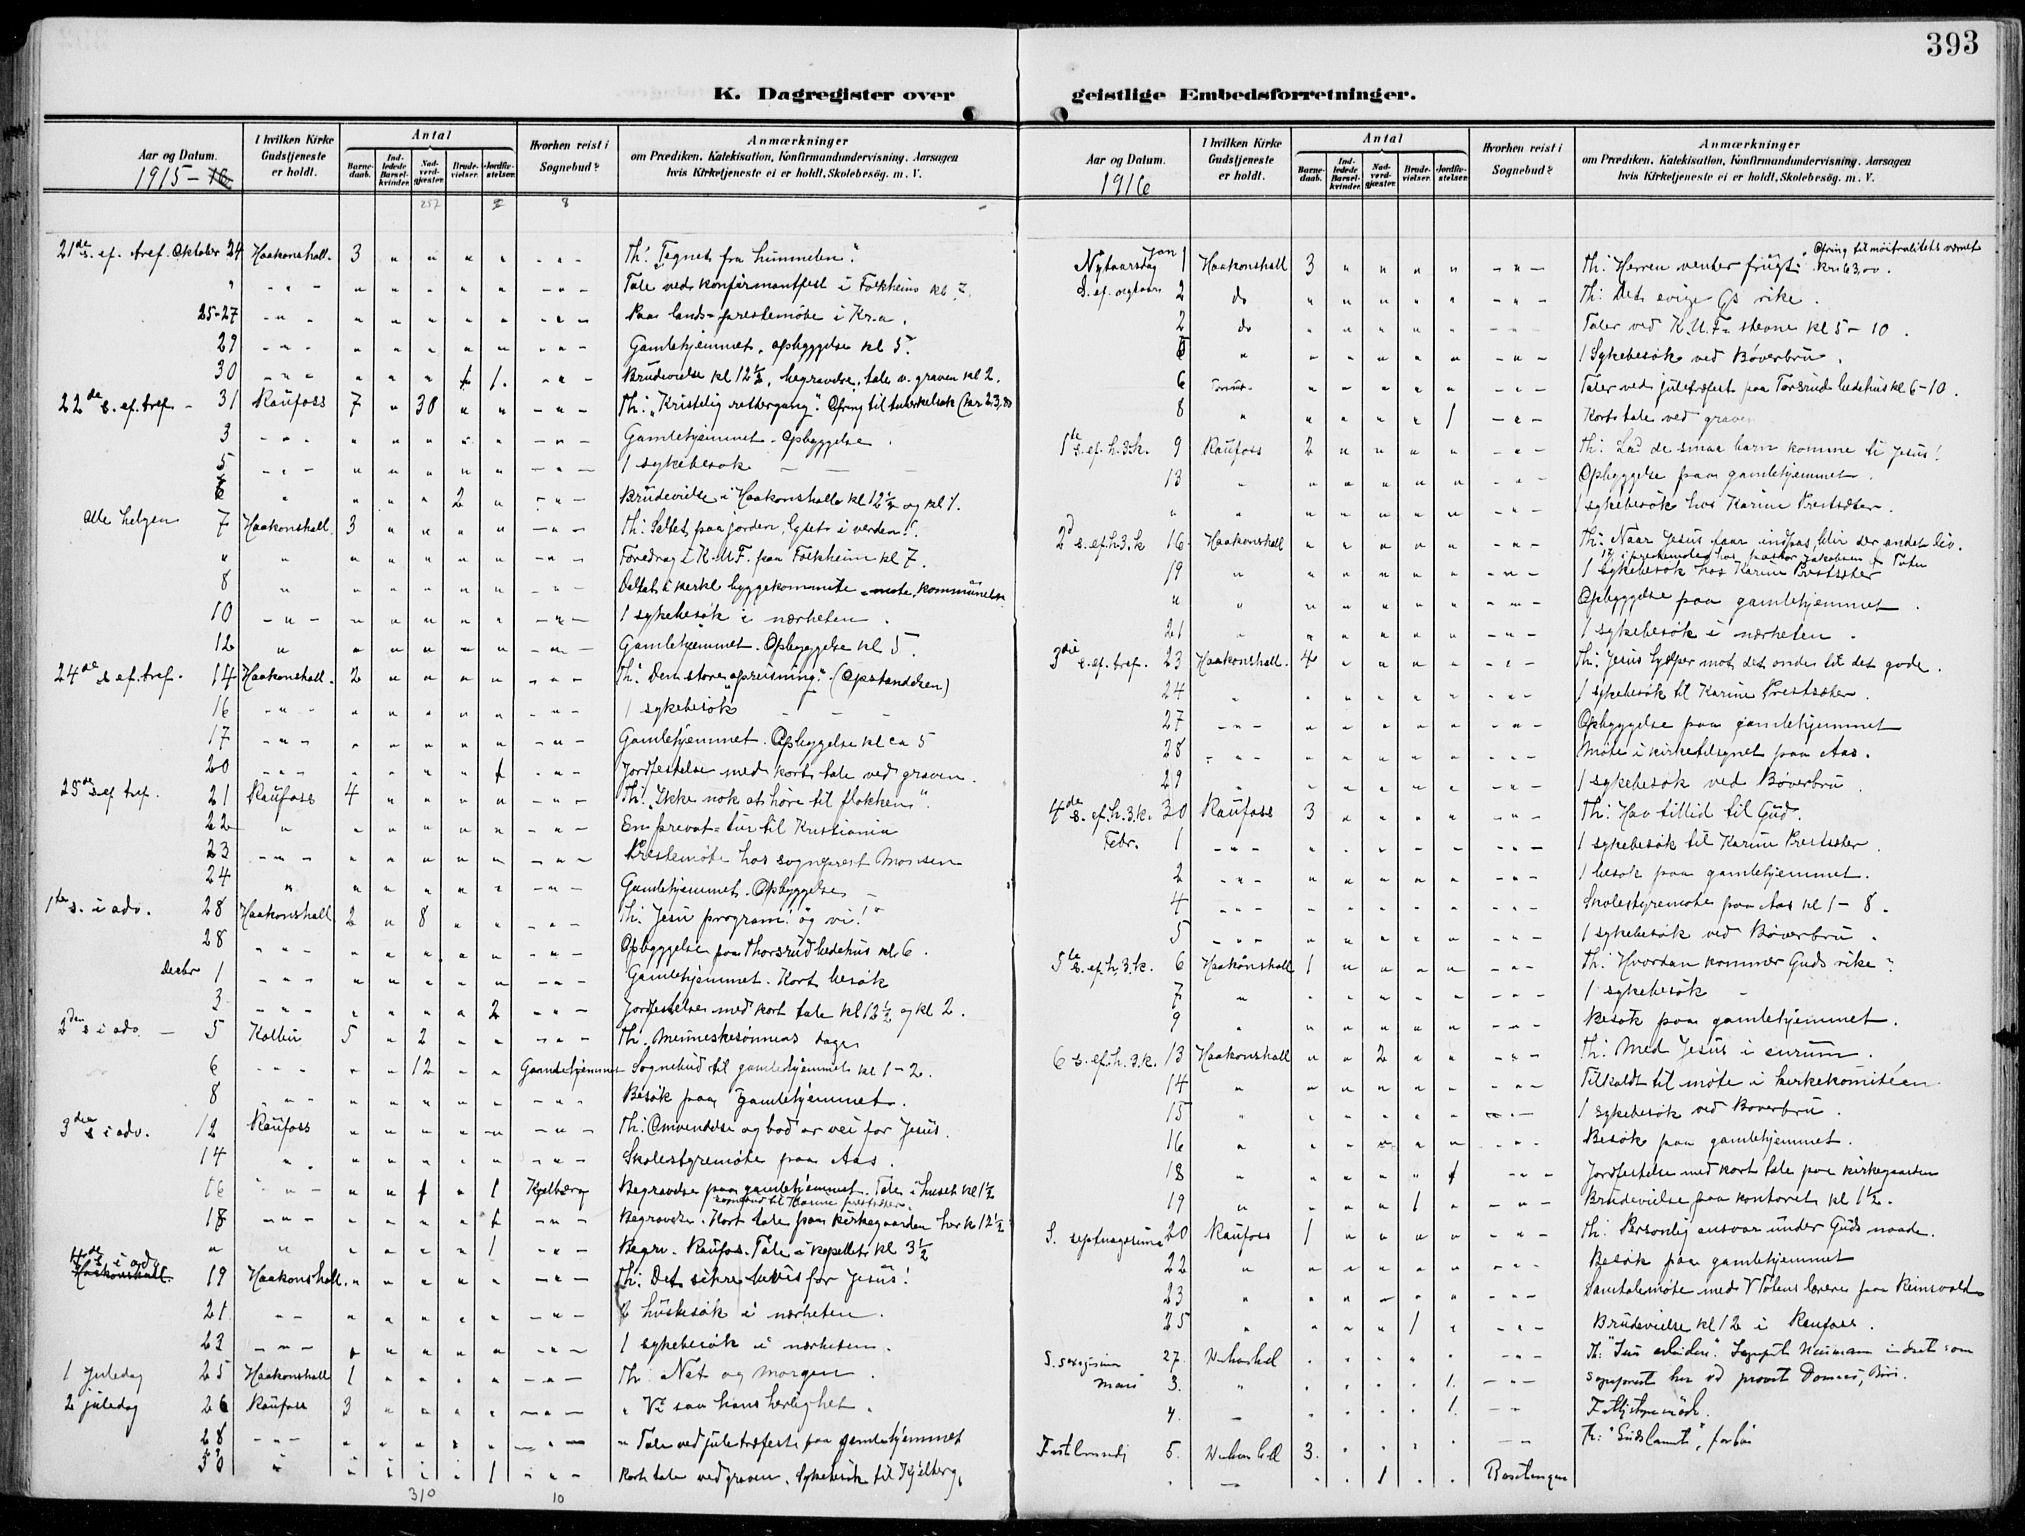 393
K. Dagregister over
geistlige Embedsforretninger.
Aar og Datum.
1915 – 16
I hvilken Kirke Gudstjeneste er holdt.
Antal
Barnedaab.
Indledede Barselkvinder.
Nadverdgjæster.
Brudevielser.
Jordfæstelser.
Hvorhen reist i Sognebud?
Anmærkninger
om Prædiken, Katekisation, Konfirmandundervisning, Aarsagen
hvis Kirketjeneste ei er holdt, Skolebesøg. m. V.
257 8
21de s. ef. tref. Oktober 24 Haakonshall. 3 " " " " - " - Th: "Tegnet fra himmelen".
" - " - " " " " " - " - Tale ved konfirmantfest i Folkheim kl 7.
25-27 - " - " " " " " - " - Paa lands-prestemöte i Kr.a.
29 - " - " " " " " - " - Gamlehjemmet, opbyggelse kl 5.
30 - " - " " " 1 1. - " - Brudevielse kl 12 1/2, begravelse, tale v. graven kl 2.
22de s. ef. tref. - 31 Raufoss 7 " 30 " " - " - Th: "Kristelig rettergang". Ofring til tuberkelsak (kr 23,80
3 - " - " " " " " - " - Gamlehjemmet - Opbyggelse.
5 - " - " " " " " - " - 1 sykebesøk
6 " " " " 2 " - " - Brudevielse i Haakonshall kl 12 1/2 og kl 1.
Alle helgen 7 Haakonshall 3 " " " " - " - Th: Saltet paa jorden, lyset i verden!
" " " " " " " - " - Foredrag i K.U.F. paa Folkheim kl 7.
8 " " " " " " - " - Deltat i kirke byggekommite-møte,
10 - " - " " " " " - " - 1 sykebesök i nærheten.
12 " " " " " " - " - Gamlehjemmet. Opbyggelse kl 5.
24de s. ef. tref. 14 Haakonshall. 2 " " " " - " - Th: Den store opreisning". (Opstandelsen)
16 - " - " " " " " - " - 1 sykebesøk
17 - " - " " " " " - " - Gamlehjemmet. Opbyggelse kl ca 5
20 - " - " " " " 1 - " - Jordfestelse med kort tale ved graven.
25de s. ef. tref. 21 Raufoss 4 " " " " - " - Th: "Ikke nok at høre til flokken".
22 " " " " " " - " - En privat-tur til Kristiania
23 - " - " " " " " - " - Prestemøte hos sogneprest Monsen
24 " " " " " " - " - Gamlehjemmet. Opbyggelse
1ste s. i adv. 28 Haakonshall 2 " 8 " " - " - Th: Jesu program! og vi!"
28 - " - " " " " " - " - Opbyggelse paa Thorsrud bedehus kl 6.
Decbr 1 - " - " " " " " - " - Gamlehjemmet. Kort besøk
3 - " - " " " " 2 - " - Jordfestelse med kort tale kl 12 1/2 og kl 2.
2den s i adv. - 5 Kolbu 5 " 2 " " - " - Th. Menneskesønnens dager
6 - " - " " 12 " " Gamlehjemmet Sognebud til gamlehjemmet kl 1-2.
8 - " - " " " " " - " - Besök paa gamlehjemmet.
3die s i adv. 12 Raufoss " " " " " - " - Th: Omvendelse og bod er vei for Jesus.
14 " " " " " " - " - Skolestyremøte paa Aas.
16 - " - " " 1 " 1 Kjølberg Begravelse paa gamlehjemmet. Tale i huset kl 1 1/2
sognebud til Karine Prestsæter.
18 - " - " " " " 1 - " - Begravelse. Kort tale paa kirkegaarden her kl 12 1/2
" " " " " " 1 - " - Begr. Raufos. Tale i kapellet kl 3 1/2
4de s i adv. Haakonshall. 19 Haakonshall. " " " " " - " - Th: Det sikre bevis for Jesus!
21 - - " " " " " - " - 2 husbesøk i nærheten.
23 - " - " " " " " - " - 1 sykebesøk i nærheten.
1 juledag 25 Haakonshall 1 " " " " - " - Th: Nat og morgen.
2 juledag 26 Raufoss 3 " " " " - " - " Vi saa hans herlighet.
28 - " - " " " " " - " - " Tale ved juletræfest paa gamlehjemmet
30 " " " " " 1 - " - Kort tale ved graven. Sykebesøk til Kjølberg.
310 10
Aar og Datum.
1916
I hvilken Kirke Gudstjeneste er holdt.
Antal
Barnedaab.
Indledede Barselkvinder.
Nadverdgjæster.
Brudevielser.
Jordfæstelser.
Hvorhen reist i Sognebud?
Anmærkninger
om Prædiken, Katekisation, Konfirmandundervisning, Aarsagen
hvis Kirketjeneste ei er holdt, Skolebesøg. m. V.
Nytaarsdag Jan 1 Haakonshall 3 " " " " - " - Th: Herren venter frugt". Ofring til nøitralitets værnet Kr. 63,00.
S. ef. nytaar 2 do " " " " " - " - Th: Det evige Gs rike.
2 do " " " " " - " - Taler ved K.U.F.s stevne kl 5-10.
" " " " " " - " - 1 Sykebesøk ved Bøverbru.
6 " " " " " - " - Taler ved juletræfest paa Torsrud bedehus kl 6-10.
8 " " " " " 1 - " - Kort tale ved graven
1ste s. ef. h. 3. k. 9 Raufoss 2 " " " " - " - Th: Lad de smaa barn komme ti Jesus!
13 " " " " " " - " - Opbyggelse paa gamlehjemmet.
" " " " " " " - " - 1 sykebesøk hos Karine Prestsæter.
2d s. ef. h. 3. k 16 Haakonshall " " " " " - " - Th: Naar Jesus faar indpas, blir der andet liv.
19 " " " " " " - " - 1 sykebesøk hos Karine Prestsæter
17 i prestemøte hos pastor Jakobsen Ø Toten
" " " " " " " - " - Opbyggelse paa gamlehjemmet.
21 " " " " " " - " - 1 sykebesök i nærheten.
3die s. ef. tref. 23 Haakonshall. 4 " " " " - " - Th: Jesus hjælper mot det onde til det gode.
24 " " " " " " - " - 1 sykebesök til Karine Prestsæter.
27 - " - " " " " " - " - Opbyggelse paa gamlehjemmet
28 - " - " " " " " - " - Møte i kirketilsynet paa Aas.
29 " " " " " " - " - 1 sykebesøk ved Bøverbru.
4de s. ef. h. 3. k. 30 Raufoss 3 " " " " - " - Th: Hav tillid til Gud.
Febr. 1 - " - " " " " " - " - 1 sykebesøk til Karine Prestsæter.
2 - " - " " " " " - " - 1 besøk paa gamlehjemmet.
4 - " - " " " " " - " - Skolestyremøte paa Aas kl 1-8.
5 - " - " " " " " - " - 1 sykebesøk ved Bøverbru.
5te s. ef. h. 3. k. 6 Haakonshall 1 " " " " - " - Th: Hvordan kommer Guds rike"
7 " " " " " " - " - 1 sykebesøk
9 " " " " " " - " - Besøk paa gamlehjemmet.
6 s. ef. h. 3. k. 13 Haakonshall " " 2 " " - " - Th: Med Jesus i enrum.
14 " " " " " " - " - Tilkaldt til møte i kirkekomitéen
15 " " " " " " - " - 1 sykebesøk ved Bøverbru.
16 " " " " " " - " - Besøk paa gamlehjemmet.
18 " " " " " 1 - " - Jordfestelse med kort tale paa kirkegaarden
19 " " " " 1 " - " - Brudevielse paa kontoret kl 1 1/2.
S. septuagesima 20 Raufoss 1 " " " " - " - Th: Personlig ansvar under Guds naade.
22 " " " " " " - " - Besøk paa gamlehjemmet
23 " " " " " " - " - Samtalemøte med V Totens lærere paa Reinsvold
25 " " " " 1 " - " - Brudevielse kl 12 i Raufoss.
S. sexagesima 27. " " " " " - " - sogneprest her ved provst
Mars 3. " " " " " 1. - " -
4. - " " " " 1. - " -
5. 3. " " " " - " - Th: "Guds lam",
- " " 1 " "